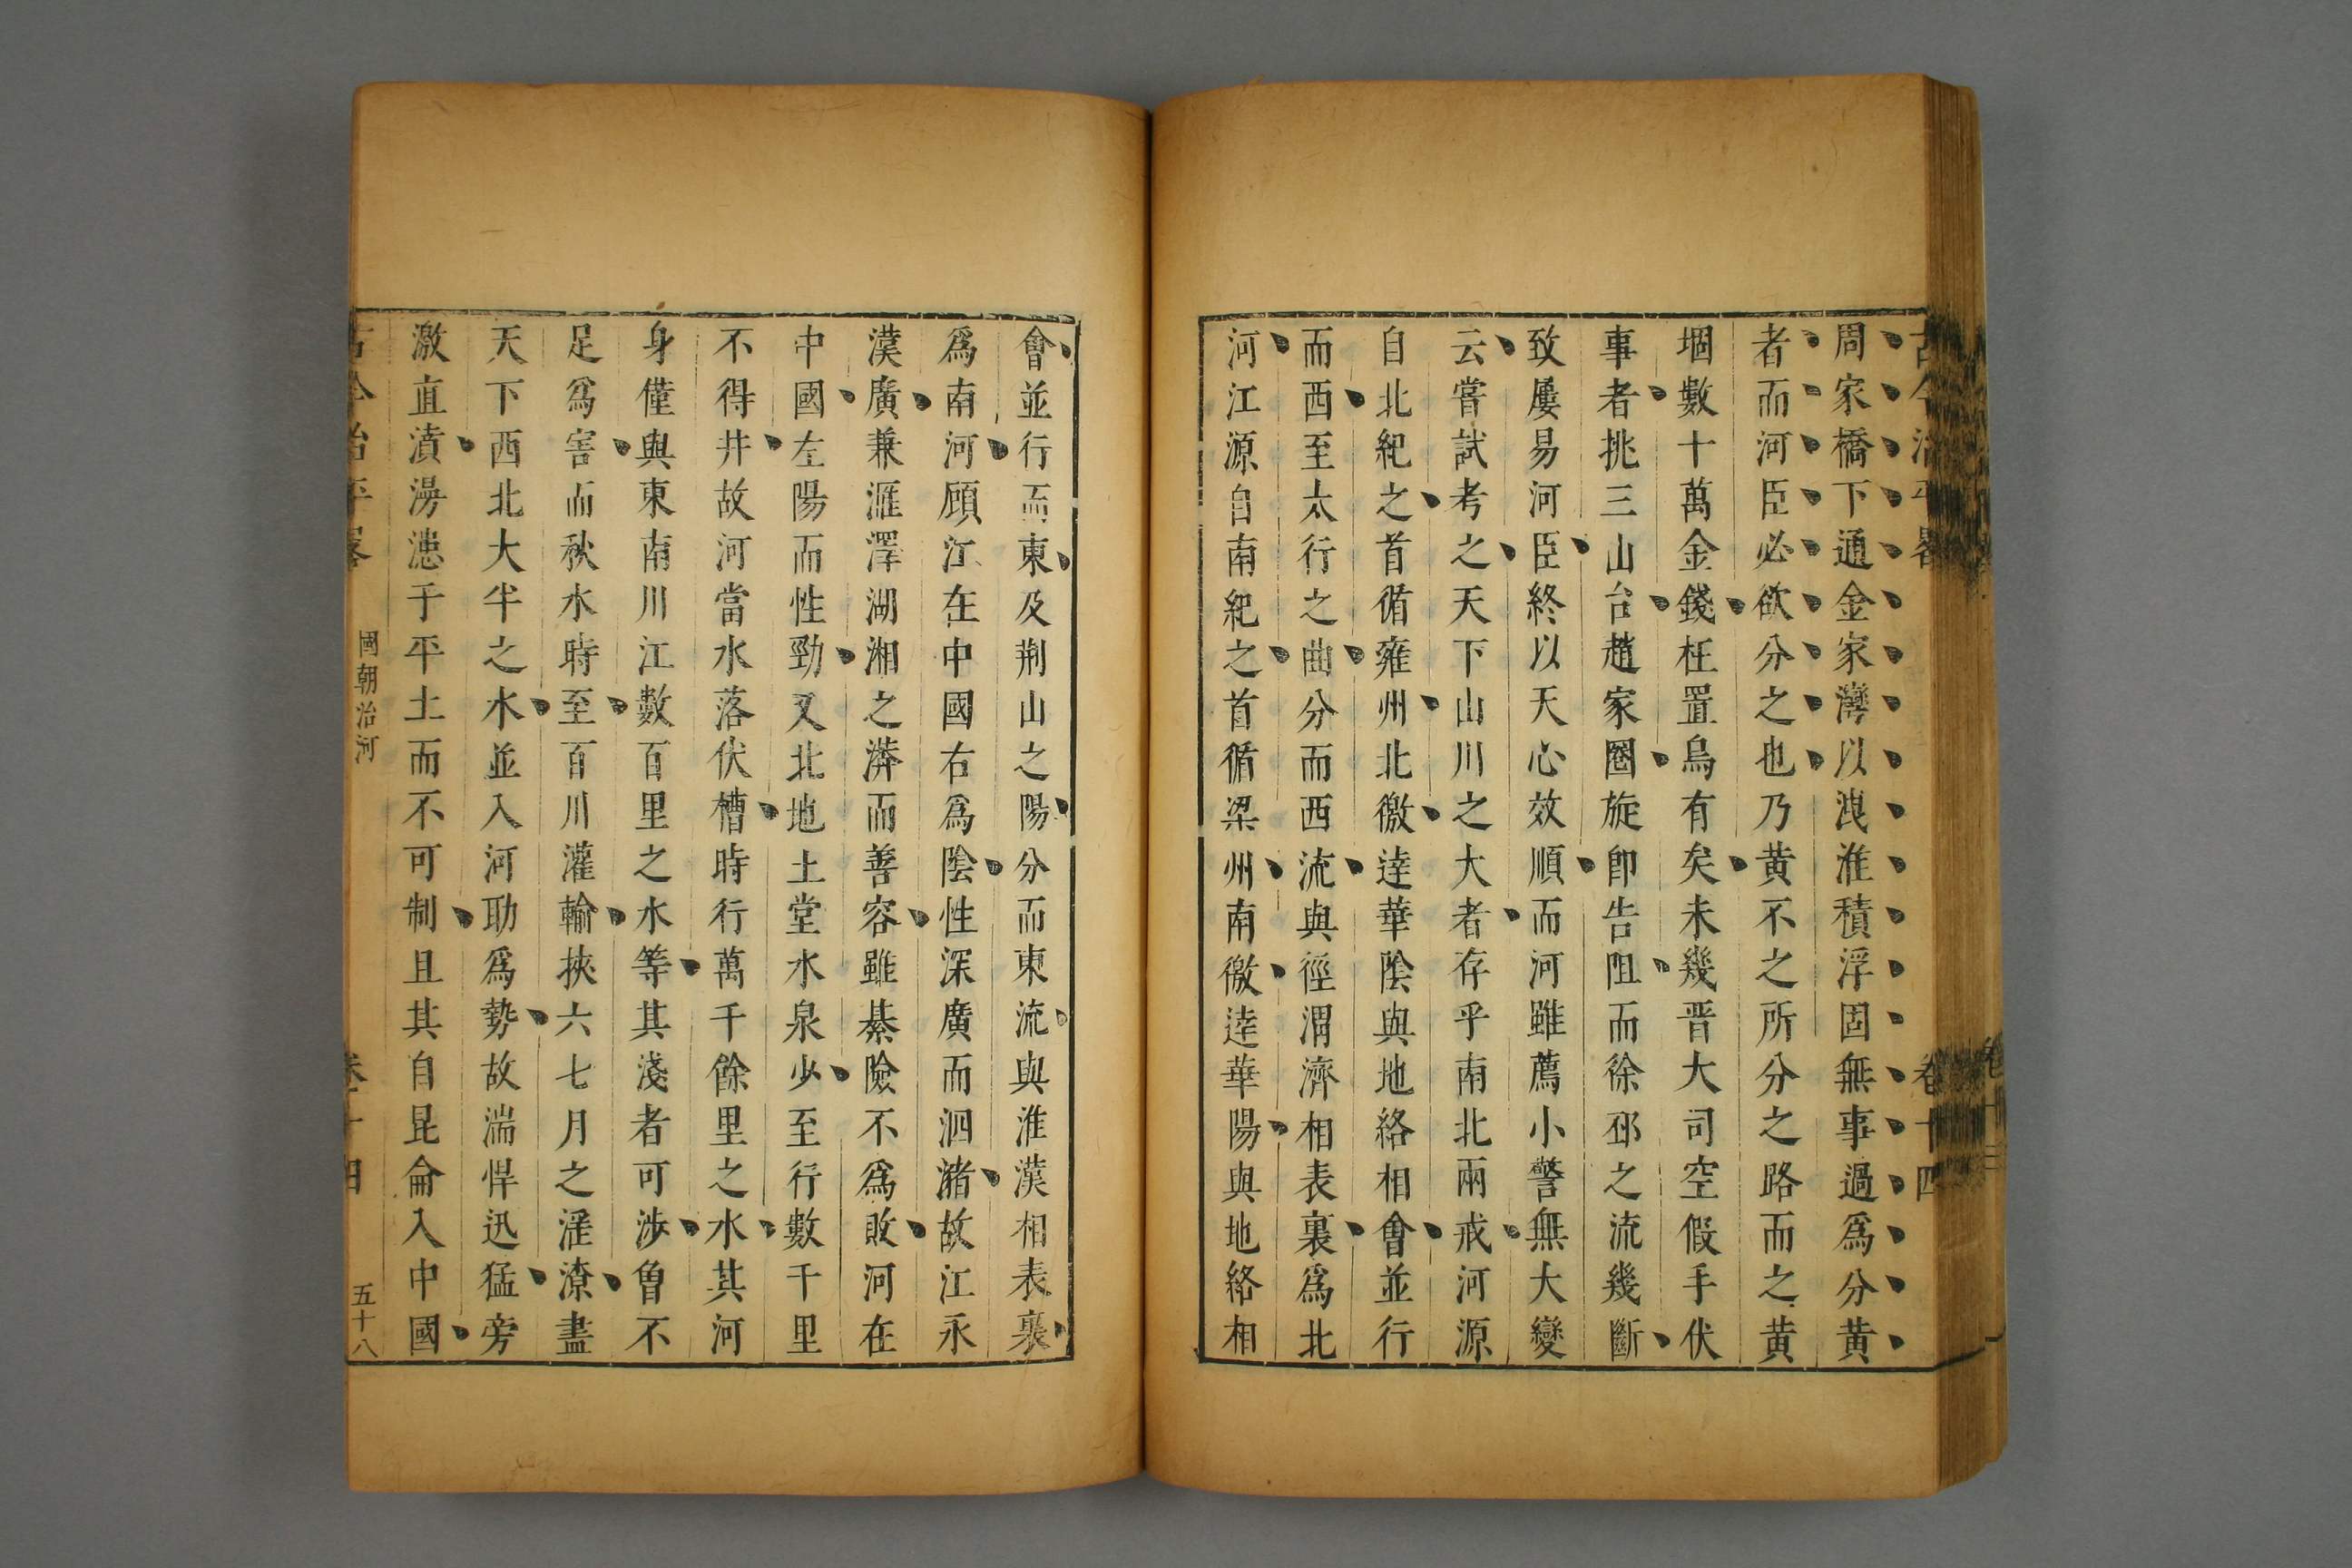 周家橋下通金家灣以洩淮積浮固無事過爲分黃
者而河臣必欲分之也乃黃不之所分之路而之黃
堌數十萬金錢枉置烏有矣未幾晋大司空假手伏
事者挑三山台趙家圈旋卽告阻而徐邳之流幾斷
致屢易河臣終以天心效順而河雖薦小警無大變
云嘗試考之天下山川之大者存乎南北兩戒河源
自北紀之首循雍州北徼逹華陰與地絡相會並行
而西至太行之曲分而西流與徑渭濟相表裏爲北
河江源自南紀之首循梁州南徼逹華陽與地絡相
古今治平畧
卷十四
會並行而東及荆山之陽分而東流與淮漢相表裏
爲南河顧江在中國右爲陰性深廣而泗瀦故江永
漢廣兼滙澤湖湘之濟而善容雖綦險不爲敗河在
中國左陽而性勁又北地土堂水泉少至行數千里
不得井故河當水落伏槽時行萬千餘里之水其河
身僅與東南川江數百里之水等其淺者可涉曾不
足爲害而秋水時至百川灌輸挾六七月之淫潦盡
天下西北大半之水並入河助爲勢故湍悍迅猛旁
激直潰漫漶于平土而不可制且其自昆侖入中國
古今治平畧
國朝治河
卷十四
五十八